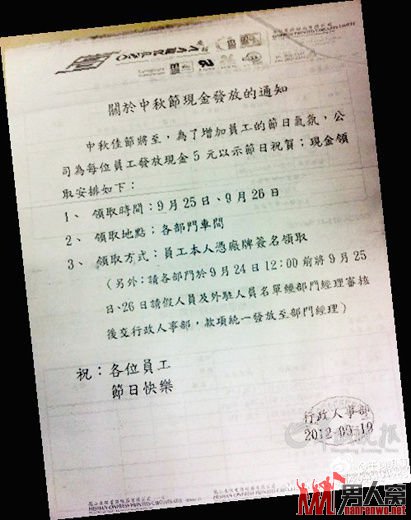 關於中秋節現金發放的通知
中秋佳節將至，為了增加員工的節日氣氛，公
司為每位員工發放現金5元以示節日祝賀；現金領
取安排如下：
1、領取時間：9月25日、9月26日
2、領取地點：各部門車間
3、領取方式：員工本人憑廠牌簽名領取
（另外：請各部門於9月24日12:00前將9月25
日、26日請假人員及外駐人員名單經部門經理審核
後交行政人事部，款項統一發放至部門經理）
祝：各位員工
節日快樂
行政人事部
2012-09-19
男人窝